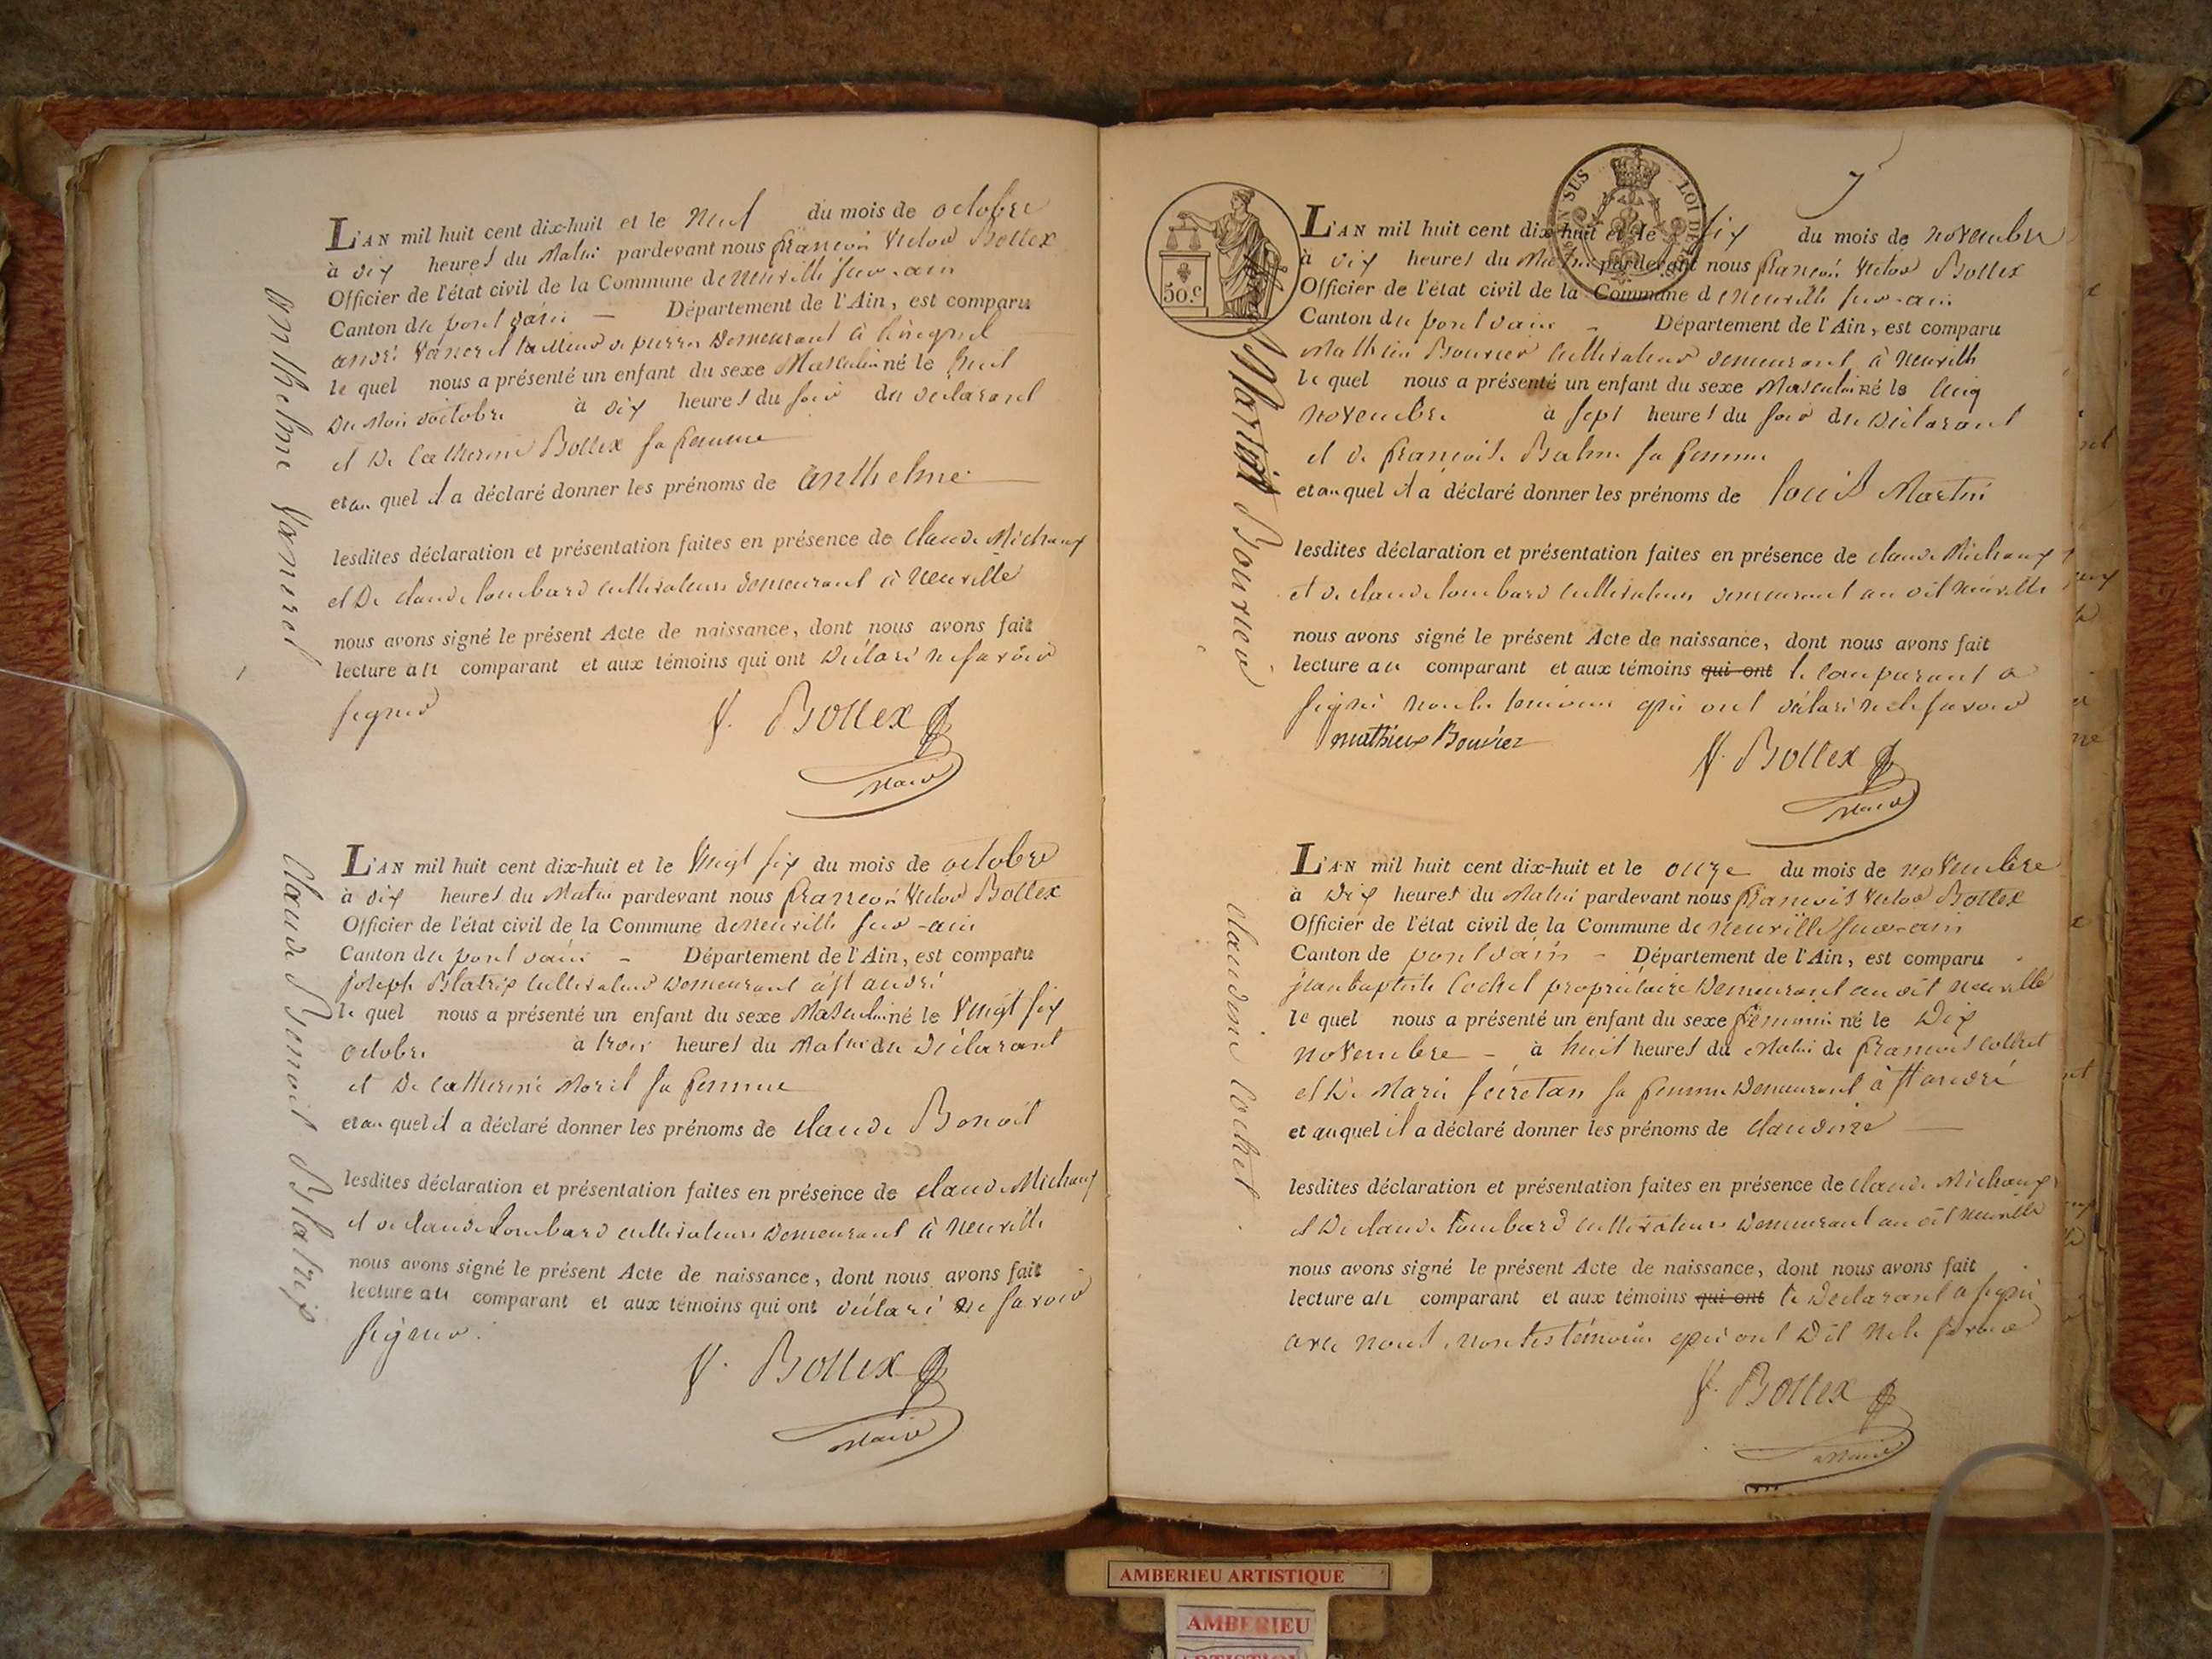 L'AN mil huit cent dix-huit et le neuf du mois de octobre
à dix heures du Matin pardevant nous françois Victor Bollex
Officier de l'état civil de la Commune de neuville sur-ain
Canton du pont dain — Département de l'Ain, est comparu
andré Vaneret tailleur de pierres Demeurant à
le quel nous a présenté un enfant du sexe Masculin né le huit
Du Mois doctobre à dix heures du soir du déclarant
et De Catherine Bollex sa femme
et au quel il a déclaré donner les prénoms de anthelme
lesdites déclaration et présentation faites en présence de claude Michaux
et De claude lombard cultivateurs demeurant à Neuville
nous avons signé le présent Acte de naissance, dont nous avons fait
lecture au comparant et aux témoins qui ont Déclaré ne savoir
signer
V. Bollex
Maire
anthelme Vaneret
L'AN mil huit cent dix-huit et le Vingt six du mois de octobre
à dix heures du Matin pardevant nous françois Victor Bollex
Officier de l'état civil de la Commune de neuville sur-ain
Canton du pont dain - Département de l'Ain, est comparu
joseph Blatrix cultivateur Demeurant à st andré
le quel nous a présenté un enfant du sexe Masculin né le Vingt six
octobre à trois heures du Matin du Déclarant
et De Catherine Morel sa femme
et au quel il a déclaré donner les prénoms de claude Benoit
lesdites déclaration et présentation faites en présence de claude Michaux
et de claude Lombard cultivateurs Demeurant à Neuville
nous avons signé le présent Acte de naissance, dont nous avons fait
lecture au comparant et aux témoins qui ont déclaré ne savoir
signer.
V. Bollex
Maire
Claude Benoit Blatrix
7
50.c
SUS LOI DE
L'AN mil huit cent dix-huit et le six du mois de novembre
à dix heures du Matin pardevant nous françois Victor Bollex
Officier de l'état civil de la Commune de neuville sur-ain
Canton du pont dain - Département de l'Ain, est comparu
Mathieu Bouvier cultivateur demeurant à neuville
le quel nous a présenté un enfant du sexe Masculin né le cinq
novembre à sept heures du soir du Déclarant
et de françoise Balme sa femme
et au quel il a déclaré donner les prénoms de louis Martin
lesdites déclaration et présentation faites en présence de claude Michaux
et de claude lombard cultivateurs demeurant au dit neuville
nous avons signé le présent Acte de naissance, dont nous avons fait
lecture au comparant et aux témoins qui ont le comparant a
signé non les temoins qui ont déclaré ne le savoir
mathieu Bouvier
V. Bollex
Maire
Martin Bouvier
L'AN mil huit cent dix-huit et le onze du mois de novembre
à Dix heures du Matin pardevant nous françois Victor Bollex
Officier de l'état civil de la Commune de neuville sur-ain
Canton de pont dain - Département de l'Ain, est comparu
jean baptiste Cochet propriétaire Demeurant au dit neuville
le quel nous a présenté un enfant du sexe féminin né le Dix
novembre - à huit heures du Matin de françois cochet
et De Marie séiretan sa femme Demeurant à st andré
et au quel il a déclaré donner les prénoms de claudine
lesdites déclaration et présentation faites en présence de claude Michaux
et De claude lombard cultivateurs Demeurant au dit neuville
nous avons signé le présent Acte de naissance, dont nous avons fait
lecture au comparant et aux témoins qui ont le Déclarant a signé
avec nous, non les témoins qui ont Dit ne le savoir
V. Bollex
Maire
claudine Cochet
AMBERIEU ARTISTIQUE
AMBERIEU